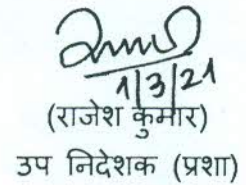 1/3/21
(राजेश कुमार)
उप निदेशक (प्रशा)